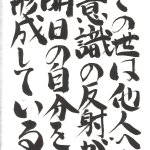 この世は他人へ
意識の反射が
明日の自分を
形成している